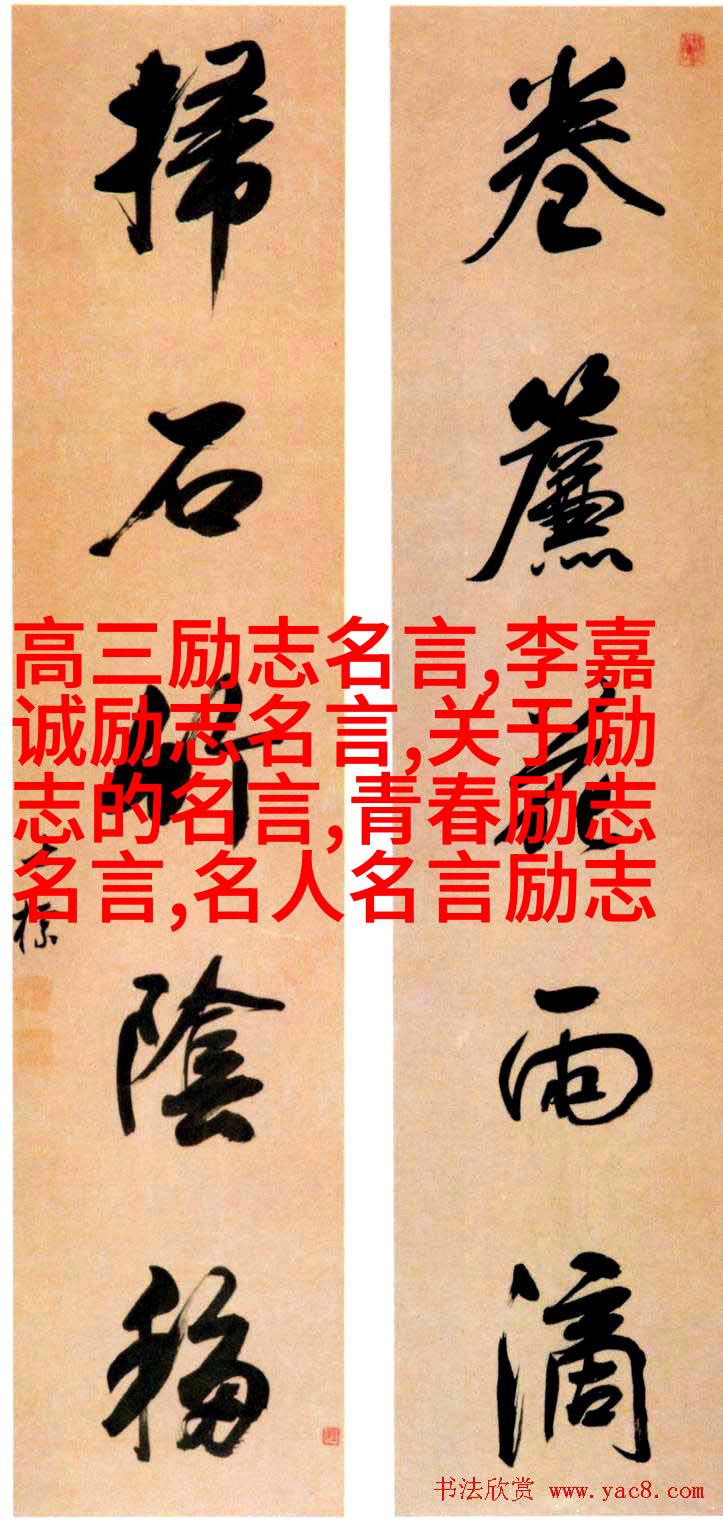 卷簾花雨滴
掃石竹陰移
士標
高三励志名言,李嘉
诚励志名言,关于励
志的名言,青春励志
名言,名人名言励志
书法欣赏 www.yac8.com